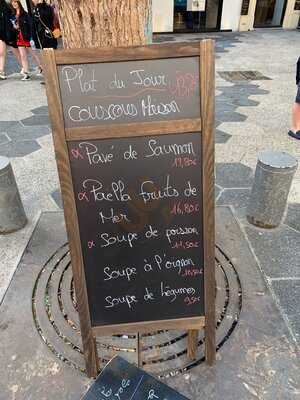 Plat du Jour
couscous Maison
Pavé de Saumon
17,80€
Paella fruits de
Mer 16,80€
Soupe de poisson
11,50€
Soupe à l'oignon
Soupe de légumes
9,50€